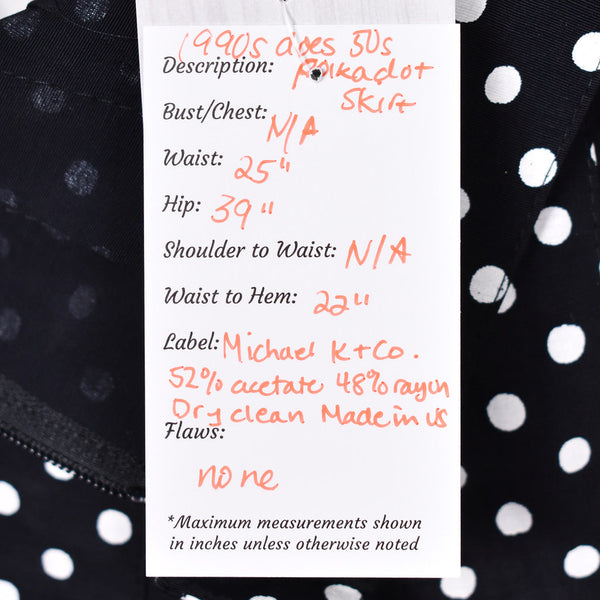 1990s does 50s
Description: Polkadot
Skirt
Bust/Chest: N/A
Waist: 25"
Hip: 39"
Shoulder to Waist: N/A
Waist to Hem: 22"
Label: Michael K+Co.
52% acetate 48% rayon
Dry clean Made in US
Flaws:
none
*Maximum measurements shown
in inches unless otherwise noted